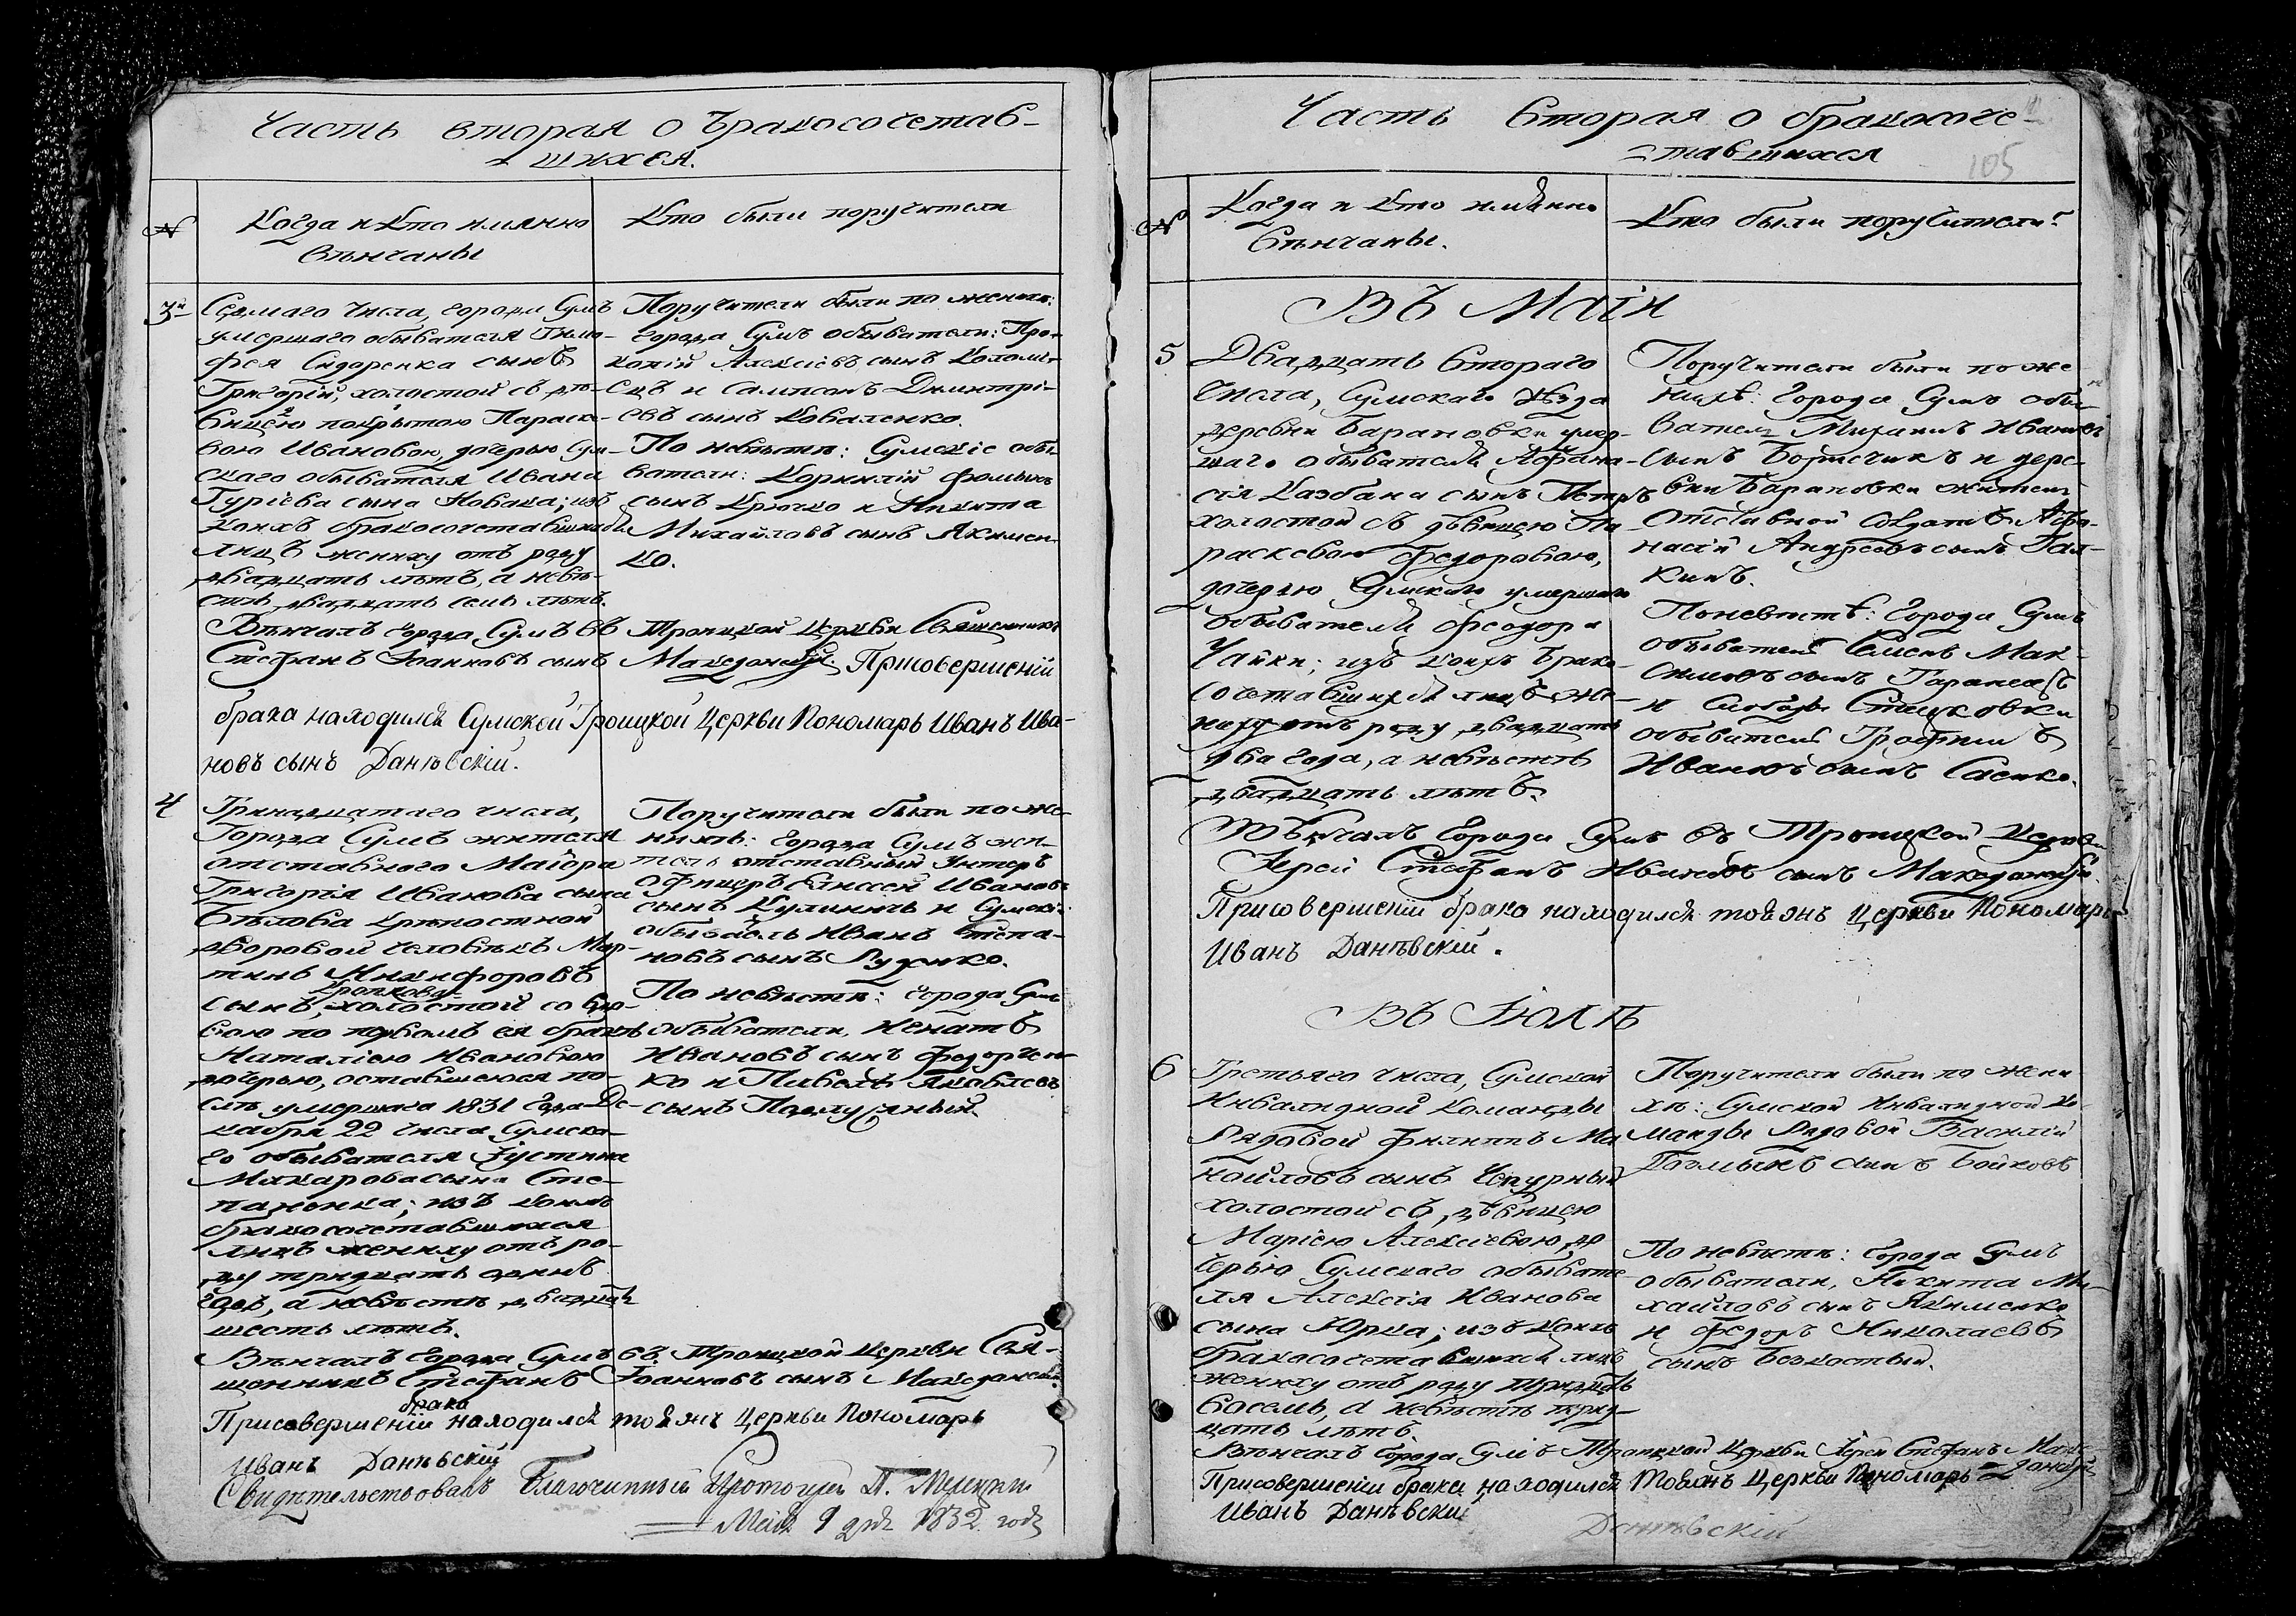 Часть вторая о бракосочетав-
шихся.
№
Когда и кто имянно
вѣнчаны
Кто были поручители
3й
Седмаго числа, города Сумъ
умершаго обывателя Тимо-
фея Сидоренка сынъ
Григорій, холостой съ дѣ-
вицею покрытою Параске-
вою Ивановою, дочерью Сум-
скаго обывателя Ивана
Гуріева сына Новака; изъ
коихъ бракосочетавшихся
лицъ жениху отъ роду
двадцать лѣтъ, а невѣ-
стѣ двадцать семь лѣтъ.
Поручители были по женихѣ:
города Сумъ обыватели: Про-
копій Алексѣевъ сынъ Коломѣ-
ецъ и Сампсонъ Димитрі-
евъ сынъ Коваленко.
По невѣстѣ: Сумскіе обы-
ватели: Корнилій Фоминъ
сынъ Крючко и Никита
Михайловъ сынъ Якимен
ко.
Вѣнчалъ города Сумъ въ Троицкой Церкви Священникъ
Стефанъ Іоанновъ сынъ Македонскій. Присовершеніи
брака находился Сумской Троицкой Церкви Пономарь Иванъ Ива-
новъ сынъ Данѣвскій.
4
Тринадцатаго числа,
Города Сумъ жителя
отставного Маіора
Григорія Иванова сына
Бѣлова крѣпостной
дворовой человѣкъ Мар-
тинъ Никифоровъ
сынъ, холостой со вдо-
вою по первомъ ея бракѣ
Наталіею Ивановою
дочерью, оставшеюся по-
слѣ умершаго 1831 года Де-
кабря 22 числа Сумска-
го обывателя Іустина
Макарова сына Сте-
паненка; изъ коихъ
бракосочетавшихся
лицъ жениху отъ ро-
ду тридцать одинъ
годъ, а невѣстѣ двадцать
шесть лѣтъ.
Поручители были по же-
нихѣ: города Сумъ жи-
тель отставный Унтеръ
офицеръ Елисей Ивановъ
сынъ Кулиничъ и Сумскій
обыватель Иванъ Степа-
новъ сынъ Руденко.
По невѣстѣ: города Сумъ
обыватели, Игнатъ
Ивановъ сынъ Федорчен-
ко и Павелъ Яковлевъ
сынъ
Вѣнчалъ города Сумъ въ Троицкой Церкви Свя-
щенникъ Стефанъ Іоанновъ сынъ Македонскій.
брака
Присовершеніи находился тоя жъ Церкви Пономарь
Иванъ Данѣвскій
Свидѣтельствовалъ Благочинный Протоіерей П.
Маія 9 дня 1832 года
Часть вторая о бракосоче-
тавшихся
105
№
Когда и кто имянно
вѣнчаны.
Кто были поручители?
Въ Маіи
5
Двадцать втораго
числа, Сумскаго уѣзда
деревни Барановки умер-
шаго обывателя Афана-
сія Казбана сынъ Петръ
холостой съ дѣвицею Па
раскевою Федоровою,
дочерью Сумскаго умершаго
обывателя Феодора
Чайки; изъ коихъ брако-
сочетавшихся лицъ же-
ниху отъ роду двадцать
два года, а невѣстѣ
двадцать лѣтъ.
Поручители были по же-
нихѣ: города Сумъ обы-
ватель Михаилъ Ивановъ
сынъ Борисчикъ и дере-
вни Барановки житель
Отставной солдатъ Афа-
насій Андреевъ сынъ Гал-
кинъ.
По невѣстѣ: Города Сумъ
обыватель Семенъ Мак-
симовъ сынъ
и слободы Стецковки
обыватель Трофимъ
Ивановъ сынъ Сасько.
Вѣнчалъ города Сумъ въ Троицкой Церкви
Іерей Стефанъ Ивановъ сынъ Македонскій.
Присовершеніи брака находился тоя жъ Церкви Пономарь
Иванъ Данѣвскій.
Въ Іюлѣ
6
Третьяго числа, Сумской
Инвалидной команды
Рядовой Филиппъ Ма
нойловъ сынъ Чепурный
холостой съ дѣвицею
Маріею Алексіевою, до
черью Сумскаго обывате-
ля Алексія Иванова
сына Юрка; изъ коихъ
бракосочетавшихся лицъ
жениху отъ роду тридцать
восемь, а невѣстѣ трид-
цать лѣтъ.
Поручители были по жени
хѣ: Сумской Инвалидной ко-
манды Рядовой Василій
сынъ Бойковъ
По невѣстѣ: города Сумъ
обыватели, Никита Ми-
хайловъ сынъ Якименко
и Федоръ Николаевъ
сынъ Безкостый.
Вѣнчалъ города Сумъ Троицкой Церкви Іерей Стефанъ Маке-
донскій
Присовершеніи брака находился тоя жъ Церкви Пономарь
Иванъ Данѣвскій
Данѣвскій